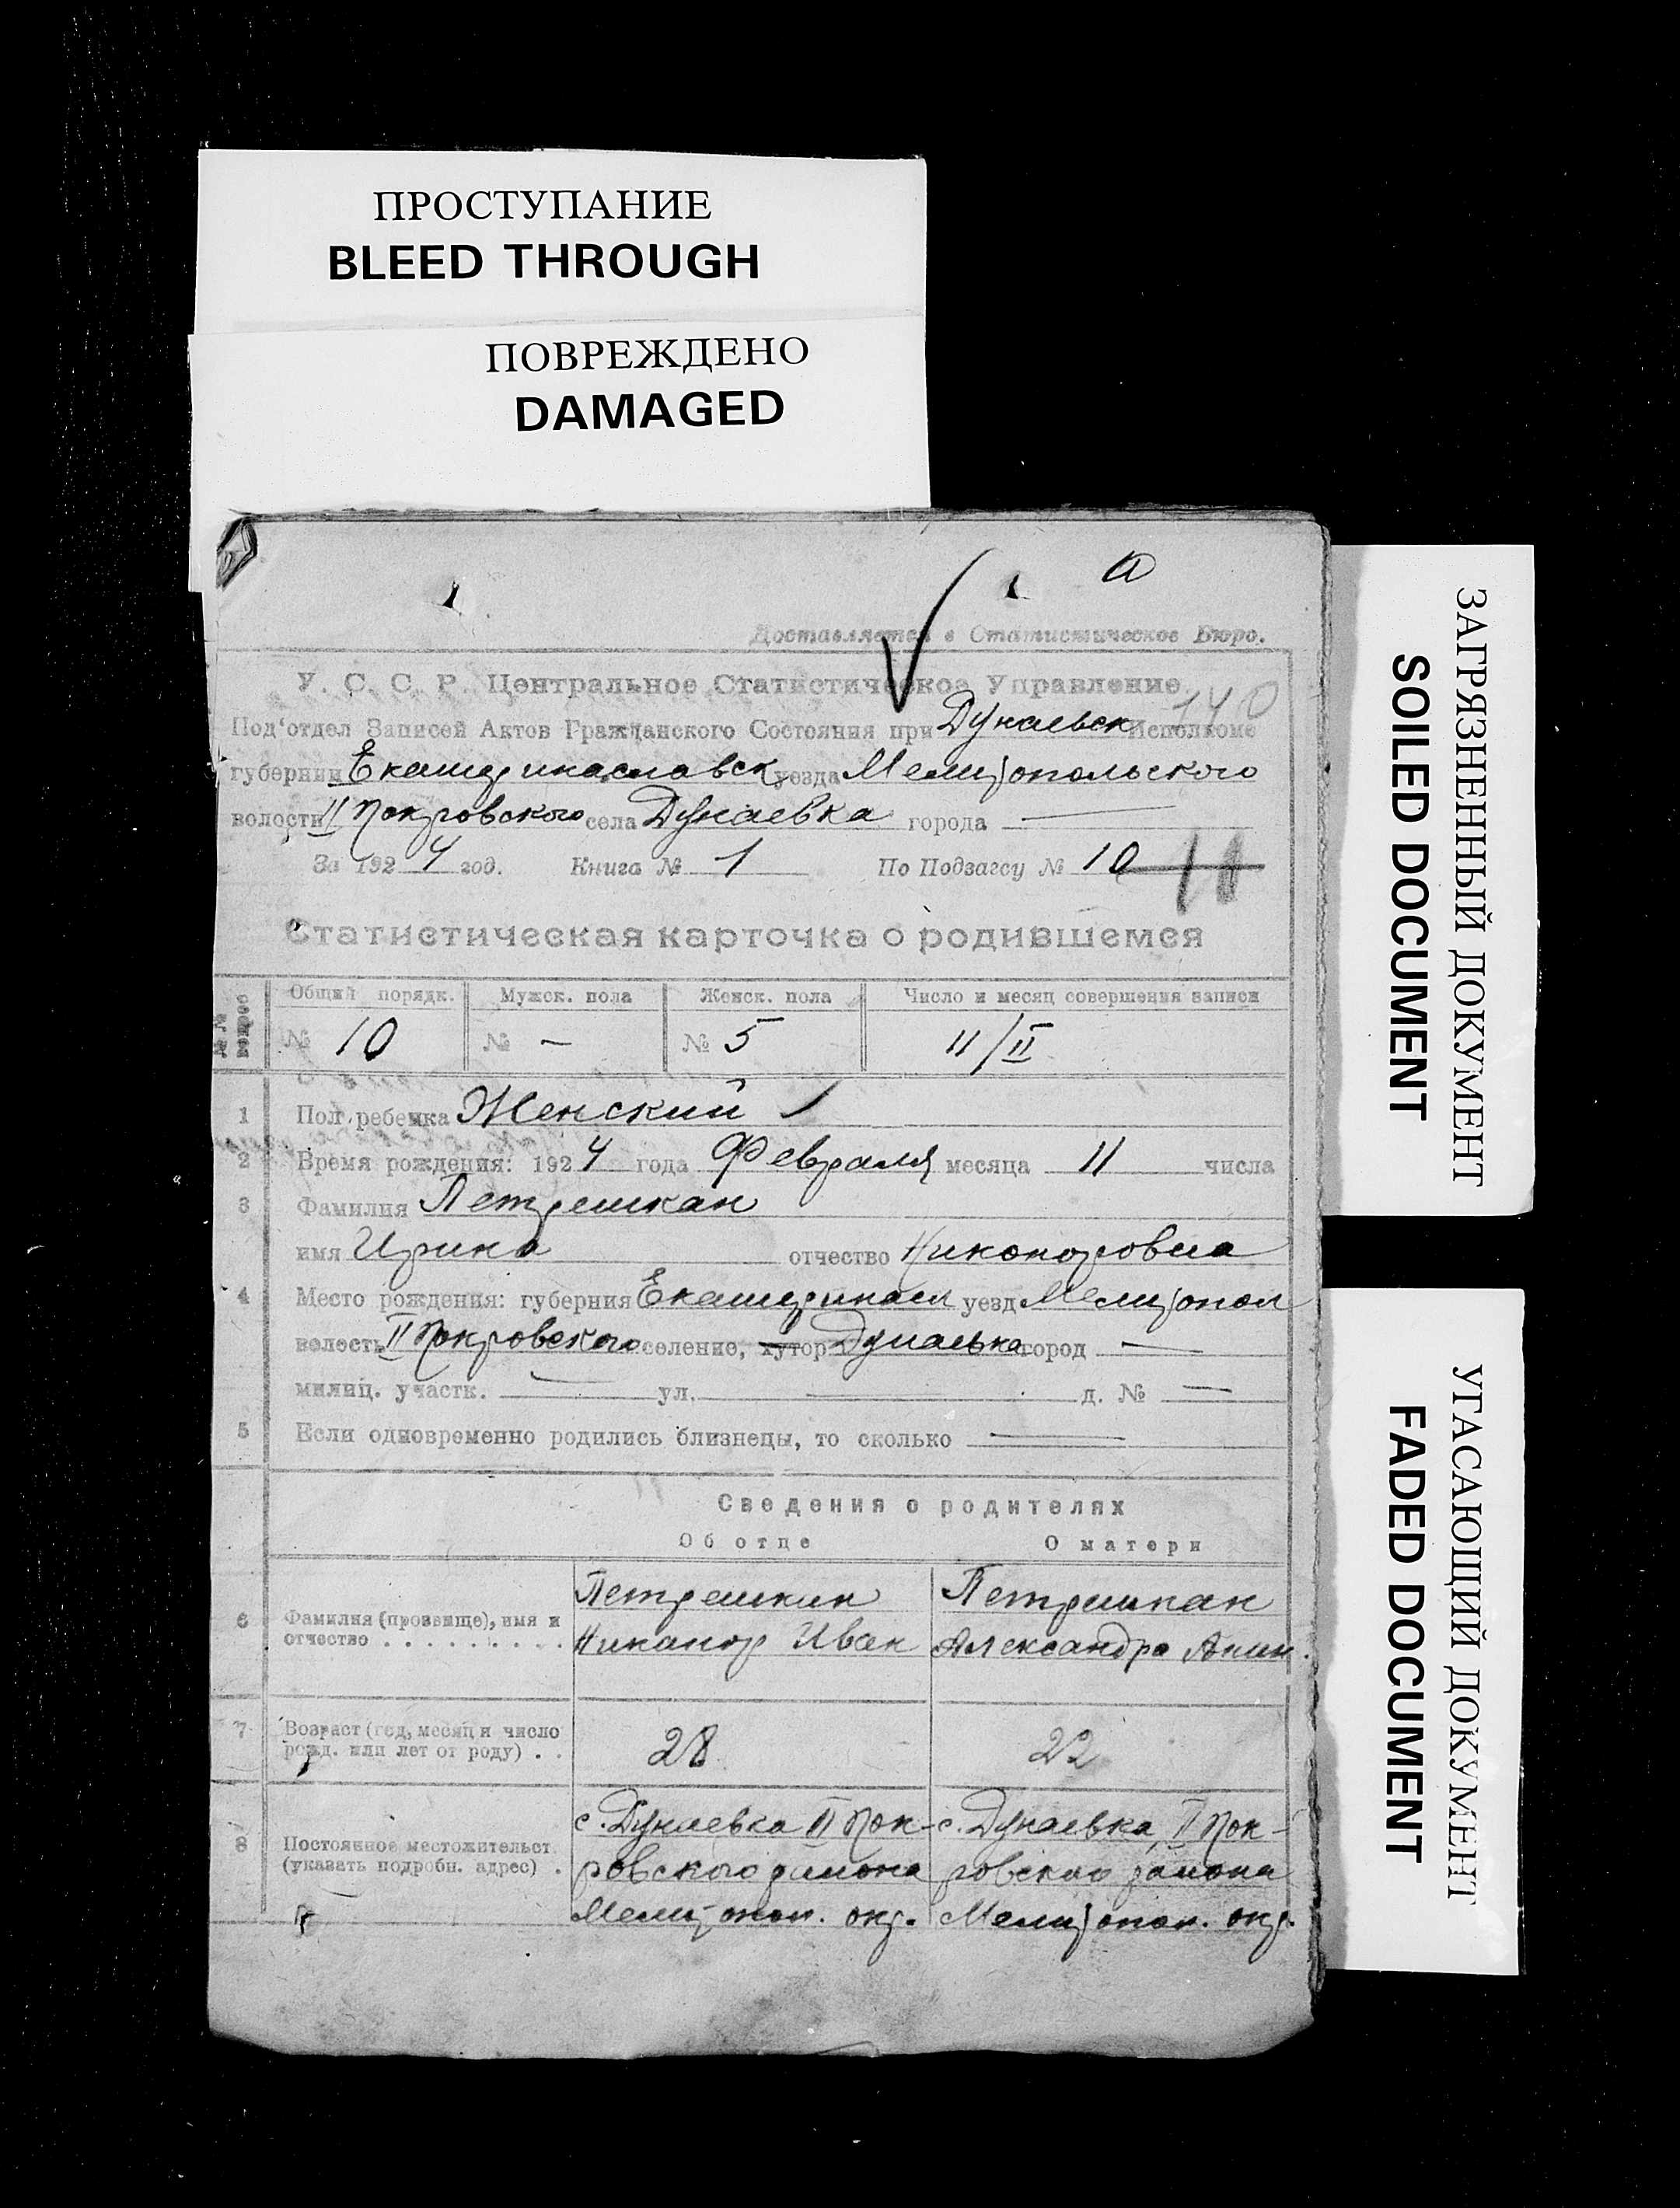 ПРОСТУПАНИЕ
BLEED THROUGH
ПОВРЕЖДЕНО
DAMAGED
ЗАГРЯЗНЕННЫЙ ДОКУМЕНТ
SOILED DOCUMENT
УГАСАЮЩИЙ ДОКУМЕНТ
FADED DOCUMENT
а
Доставляется в Статистическое Бюро.
У. С. С. Р. Центральное Статистическое Управление.
140
Под'отдел Записей Актов Гражданского Состояния при Дунаевск Исполкоме
губернии Екатеринославск уезда Мелитопольского
волости II Покровского села Дунаевка города —
За 1924 год. Книга № 1 По Подзагсу № 10 11
Статистическая карточка о родившемся
№№ вопрос
Общий порядк. Мужск. пола Женск. пола Число и месяц совершения записи
№ 10 № — № 5 11/II
1 Пол ребенка Женский
2 Время рождения: 1924 года Февраля месяца 11 числа
3 Фамилия Петрешкан
имя Ирина отчество Никоноровна
4 Место рождения: губерния Екатериносл уезд Мелитопол
волость II Покровского селение, хутор Дунаевка город —
милиц. участк. — ул. — д. № —
5 Если одновременно родились близнецы, то сколько —
Сведения о родителях
Об отце О матери
6 Фамилия (прозвище), имя и отчество . . . . . . . . .
Петрешкин
Никанор Иван
Петрешкан
Александра Аким.
7 Возраст (год, месяц и число рожд. или лет от роду) . .
28 22
8 Постоянное местожительст. (указать подробн. адрес) .
с. Дунаевка II Пок-
ровского района
Мелитопол. окр.
с. Дунаевка, II Пок-
ровского района
Мелитопол. окр.